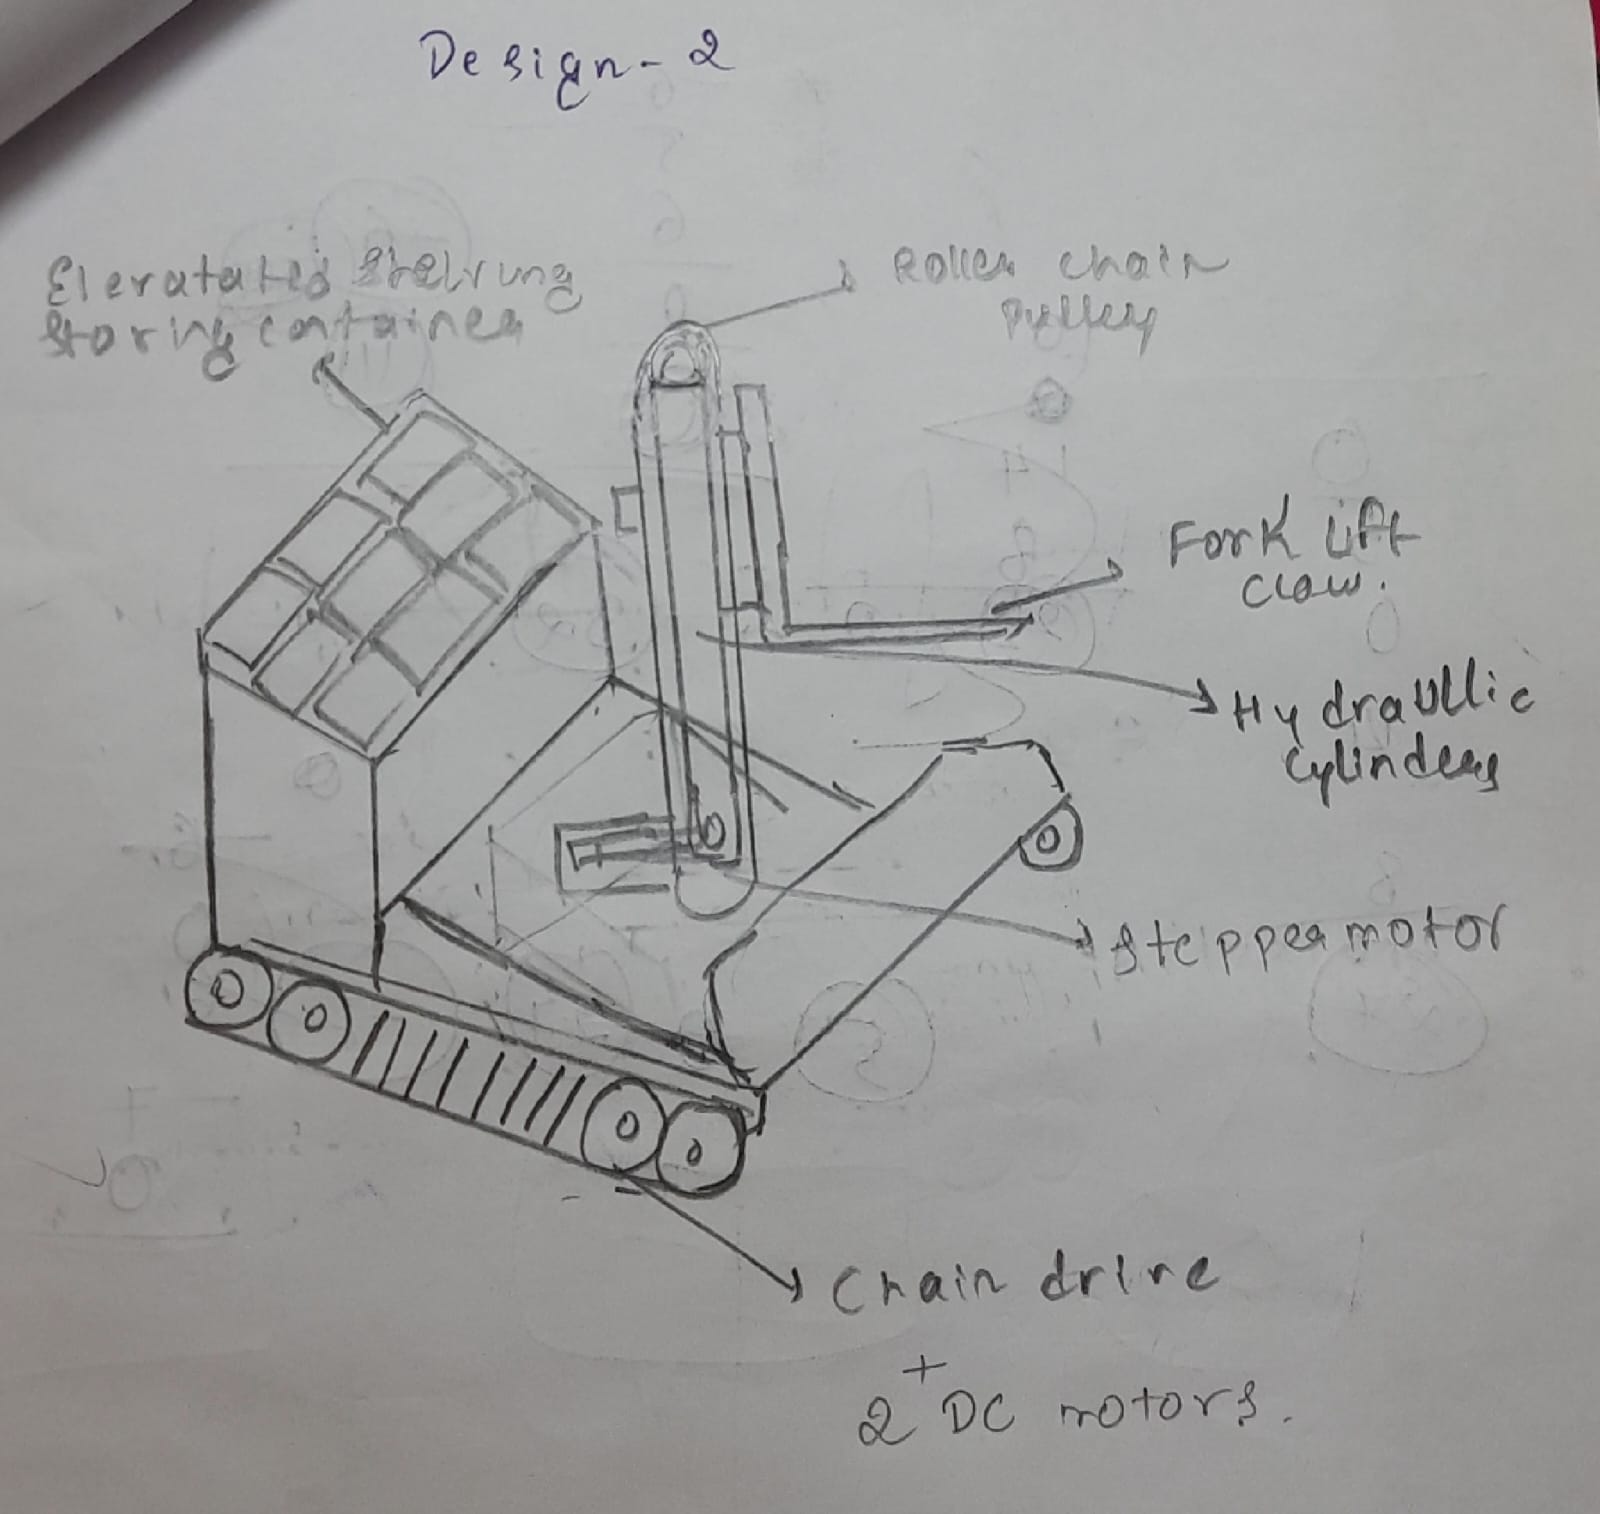 Design-2
Eleratated Shelrung
storing container
Roller chain
pulley
Fork lift
claw.
Hydraullic
Cylinders
Stepper motor
Chain drive
+
2 DC motors.